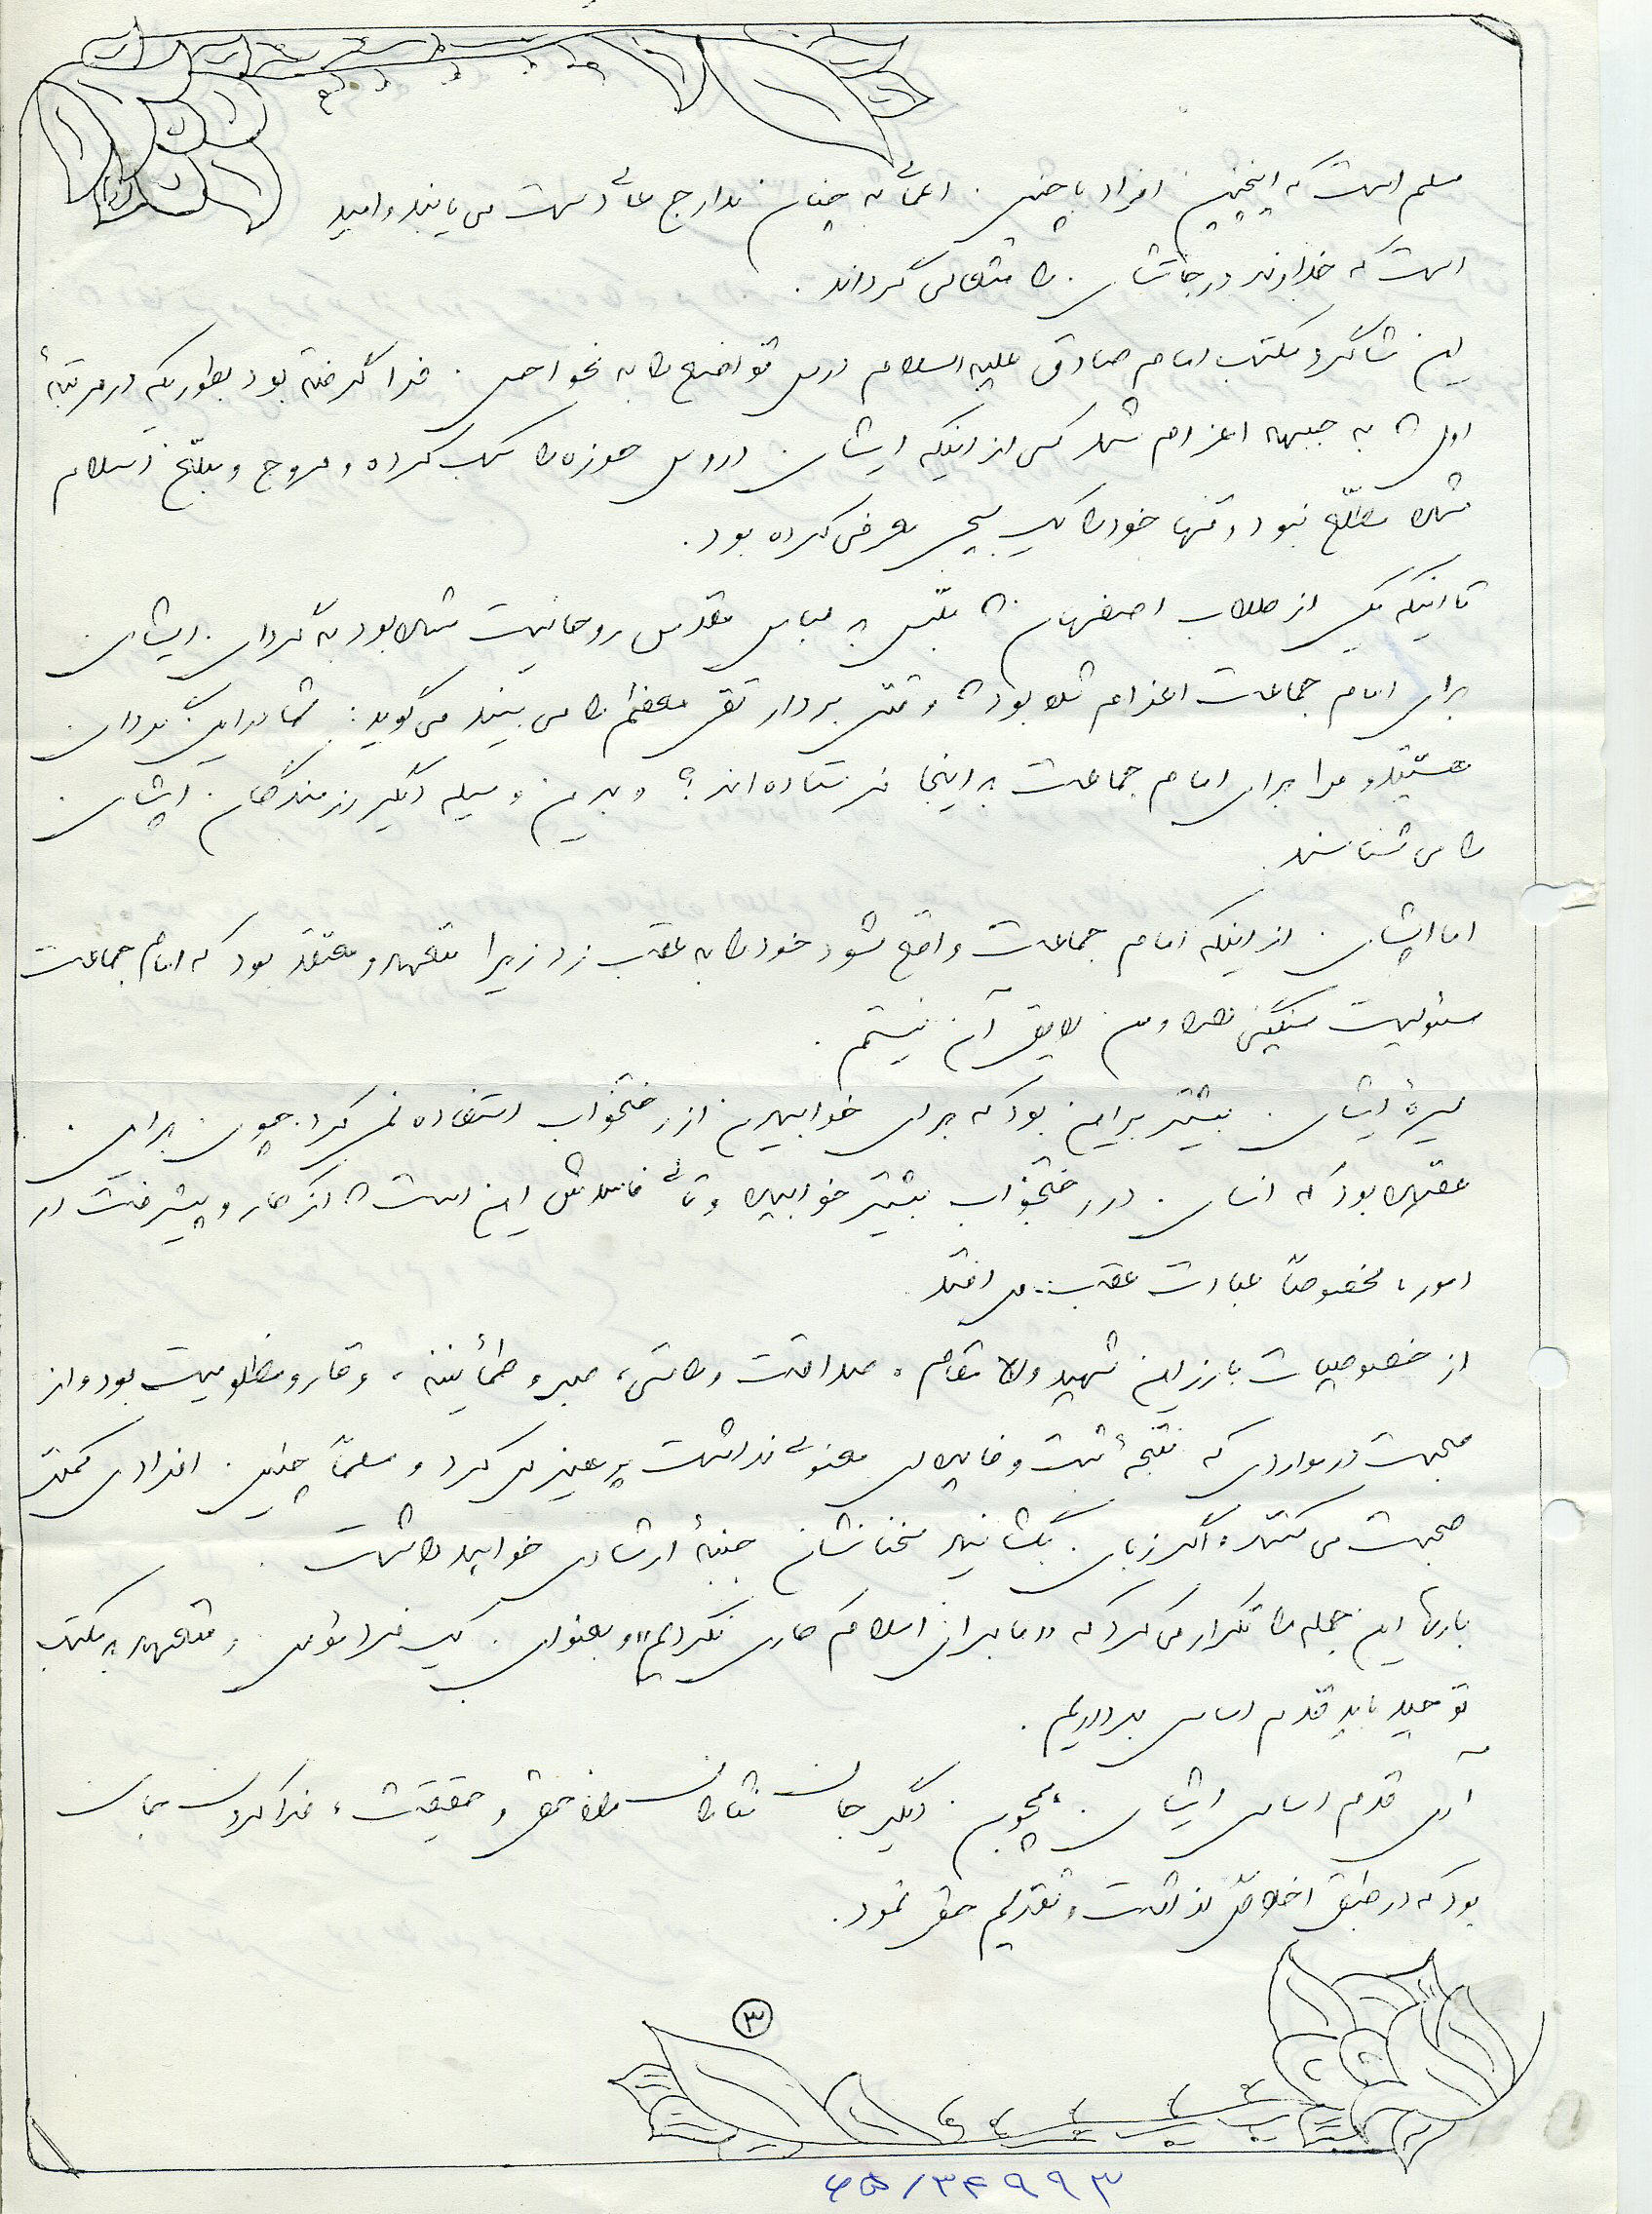 مسلم است که اینچنین افراد با چنین اعمالی به چنان مدارج عالی دست می یابند و امید
است که خداوند درجاتشان را متعالی گرداند.
این شاگرد مکتب امام صادق علیه السلام درس تواضع را به نحو احسن فرا گرفته بود بطوریکه در مرتبهٔ
اول به جبهه اعزام شد کسی از اینکه ایشان دروس حوزه را کسب کرده و مروج و مبلّغ اسلام
شده مطلّع نبود و تنها خود را یک بسیجی معرفی کرده بود.
تا اینکه یکی از طلاب اصفهان که ملبّس به لباس مقدس روحانیت شده بود به گردان ایشان
برای امام جماعت اعزام شده بود، وقتی سردار تقی معظم را می بیند می گوید: شما در این گردان
هستید و مرا برای امام جماعت به اینجا فرستاده اند؟ و بدین وسیله دیگر رزمندگان ایشان
را می شناسند.
اما ایشان از اینکه امام جماعت واقع شود خود را به عقب زد زیرا متعهد و معتقد بود که امام جماعت
مسئولیت سنگینی دارد و من لایق آن نیستم.
سیرهٔ ایشان بیشتر بر این بود که برای خوابیدن از رختخواب استفاده نمی کرد. چون بر این
عقیده بود که انسان در رختخواب بیشتر خوابیده و تمام فائده اش این است که از کار و پیشرفت در
امور، مخصوصاً عبادت عقب می افتد
از خصوصیات بارز این شهید والا مقام، صداقت و راستی، صبر و طمأنینه، وقار و مظلومیت بود و از
صحبت در مواردی که نتیجهٔ مثبت و فایده ای معنوی نداشت پرهیز می کرد و مسلماً چنین افرادی کمتر
صحبت می کنند و اگر زبان بگشایند سخنانشان جنبهٔ ارشادی خواهد داشت.
بارها این جمله را تکرار می کرد که «ما برای اسلام کاری نکردیم» و بعنوان یک فرد مؤمن و متعهد به مکتب
توحید باید قدم اساسی برداریم.
آری قدم اساسی ایشان، همچون دیگر جان نثاران راه حق و حقیقت، فدا کردن جان
بود که در طبق اخلاص گذاشت و تقدیم حق نمود.
۳
۶۵/۳۴۹۹۳